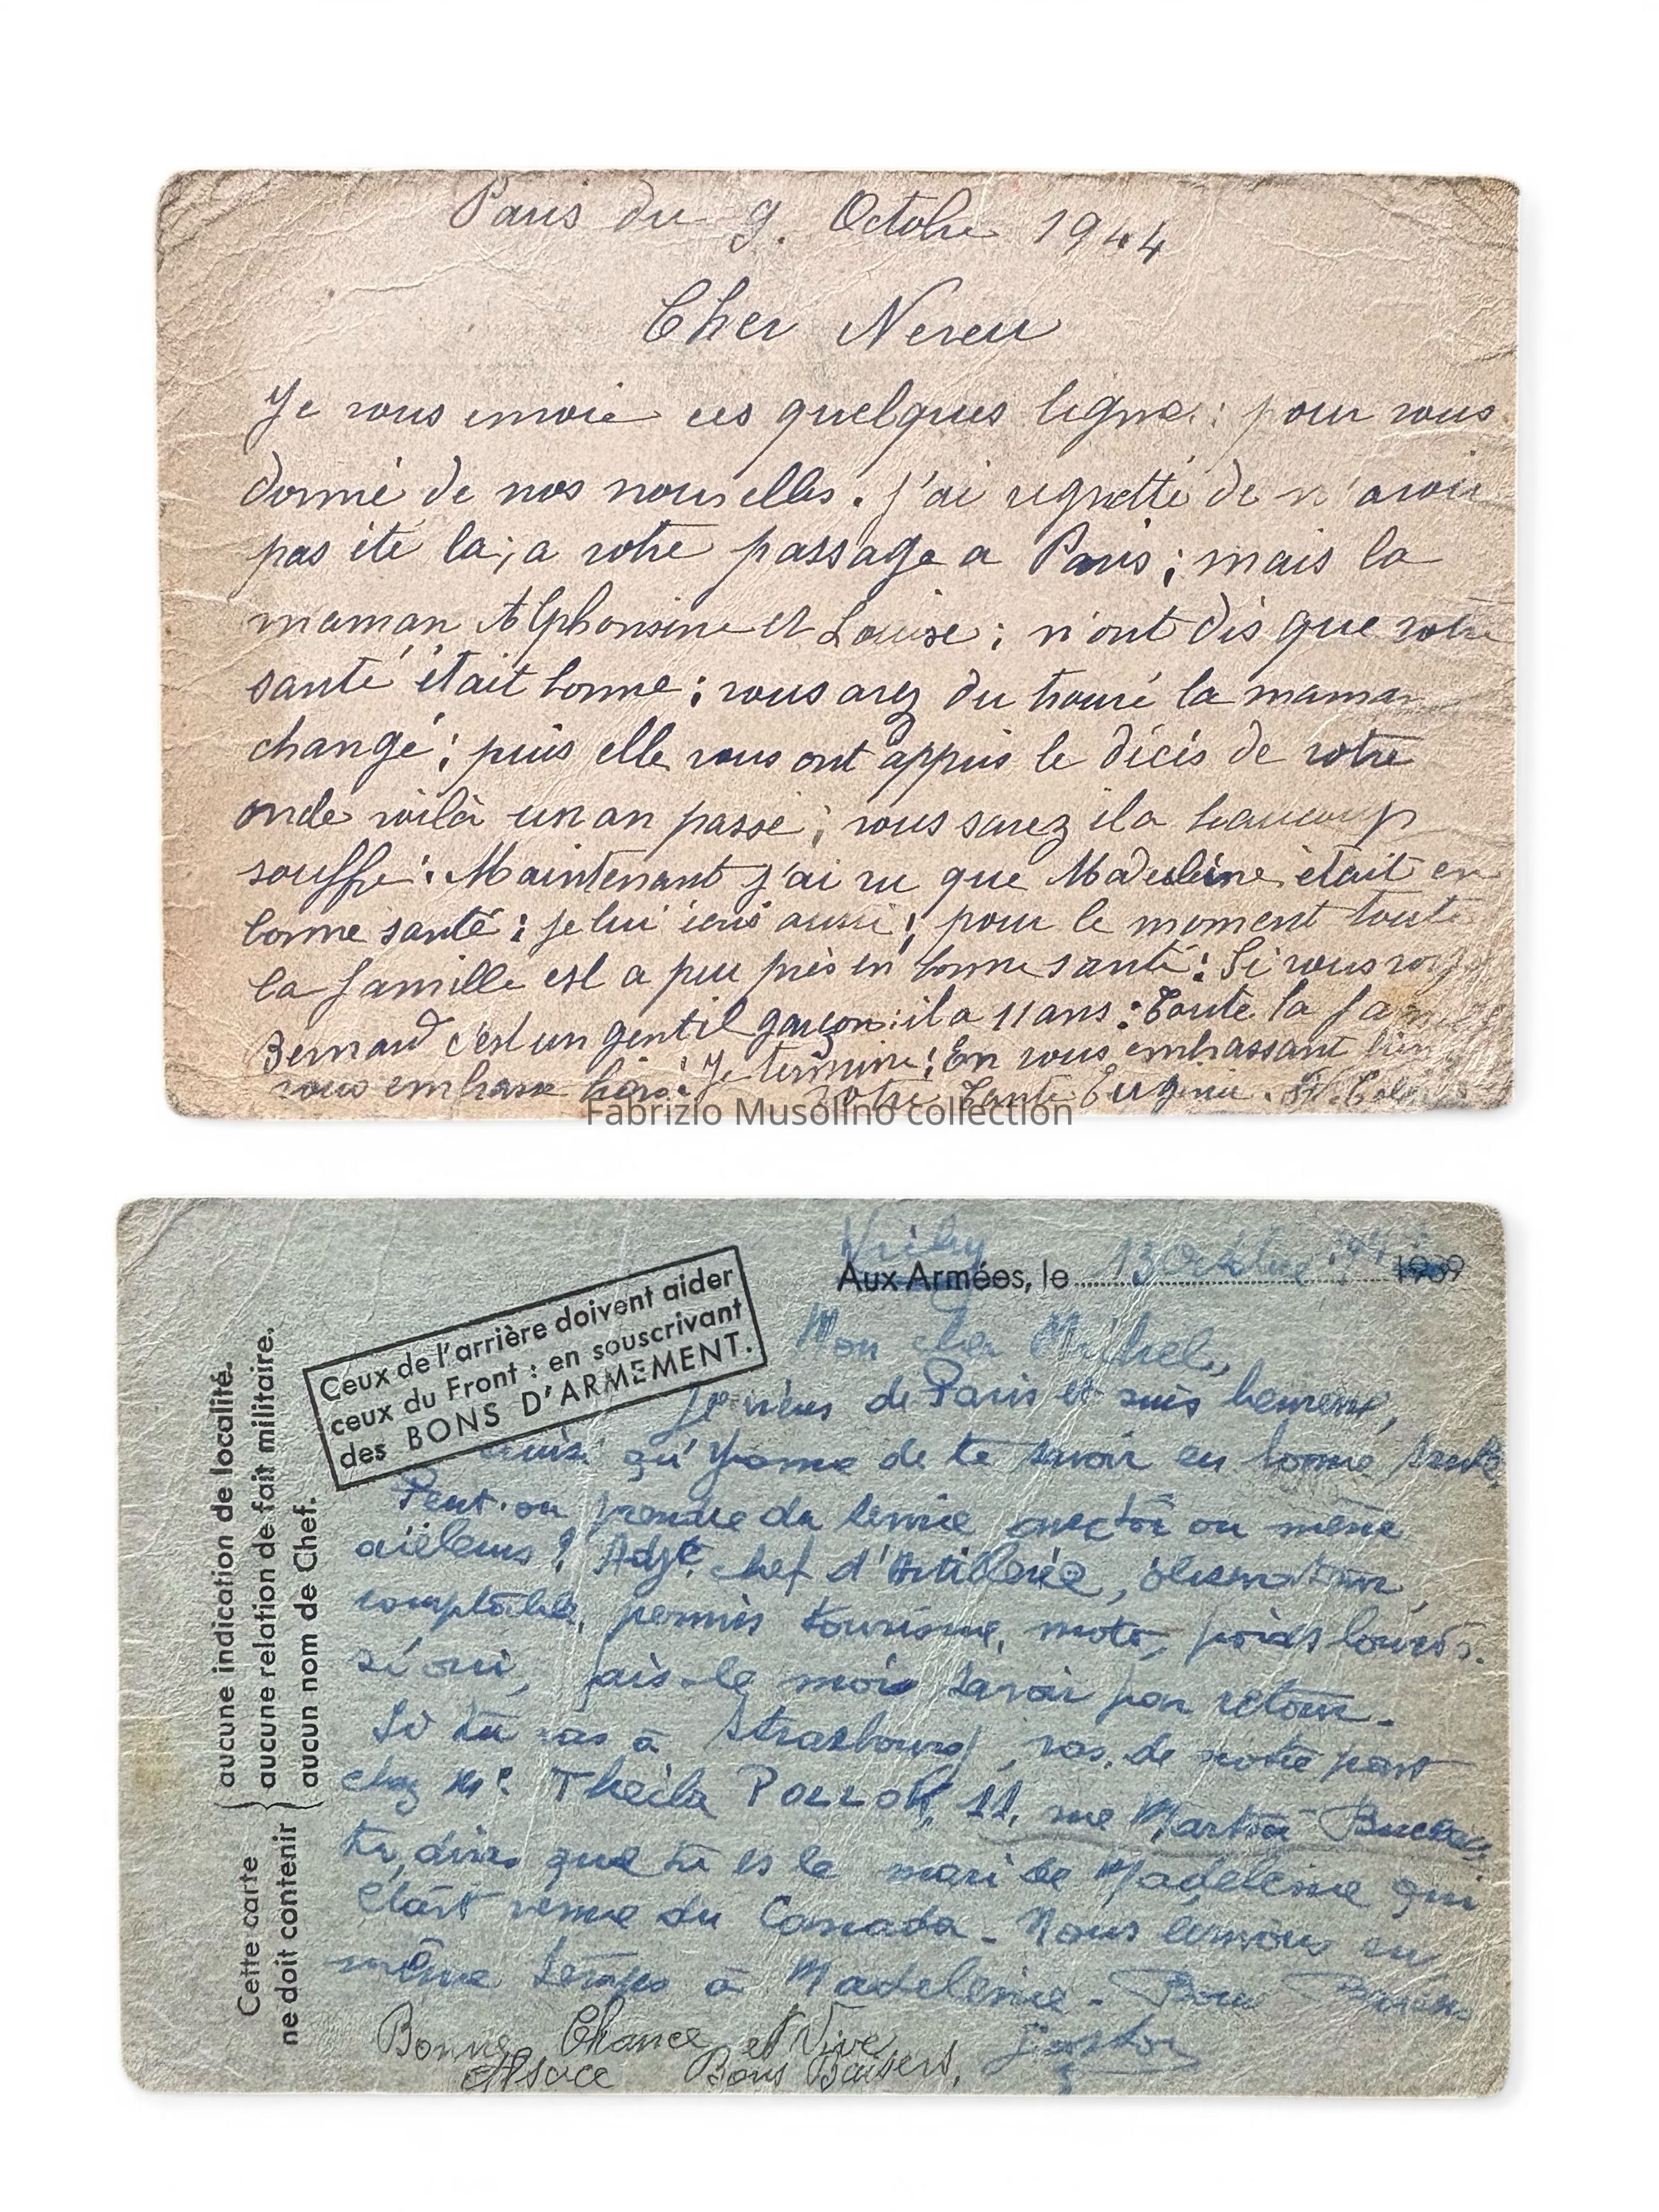 Paris du 9. Octobre 1944
Cher Neveu
Je vous envoie ces quelques ligne pour vous
donné de nos nouvelles. J'ai regretté de n'avoir
pas été la; a votre passage a Paris; mais la
maman Alphonsine et Louise; n'ont dis que votre
santé était bonne; vous avez du trouvé la maman
changé; puis elle vous ont appris le décés de votre
oncle voilà un an passé; vous savez il a beaucoup
souffr: Maintenant j'ai vu que Madeleine était en
bonne santé: je lui écris aussi; pour le moment toute
la famille est a peu près en bonne santé: Si vous
Bernard c'est un gentil garçon: il a 11 ans: Toute la
vous embrasse Je termine: En vous embrassant bien
Votre Tante Eugénie.
Fabrizio Musolino collection
Vichy
Aux Armées, le 13 Octobre 1939
Ceux de l'arrière doivent aider
ceux du Front : en souscrivant
des BONS D'ARMEMENT.
Cette carte ne doit contenir
aucune indication de localité.
aucune relation de fait militaire.
aucun nom de Chef.
Mon cher Michel,
Je viens de Paris et suis heureux,
ainsi qu'Yvonne de te savoir en bonne santé
Peut-on prendre du service avec toi ou même
ailleurs? Adjt. chef d'Artillerie, observateur,
comptable, permis tourisme, moto, poids lourds.
Si oui, fais-le moi savoir par retour.
Si tu vas à Strasbourg, vas, de notre part
chez Me Thécla POLLOK, 11, rue Martin Bucer,
tu diras que tu es le mari de Madeleine qui
était venue du Canada - Nous écrivons en
même temps à Madeleine - Bons Baisers
Gaston
Bonne Chance et Vive
Alsace Bons Baisers.